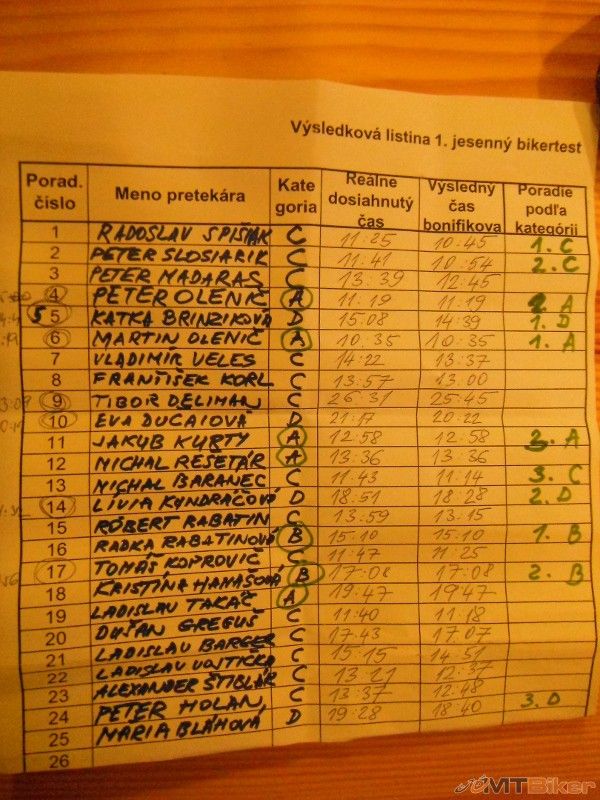 Výsledková listina 1. jesenný bikertest
Porad. číslo Meno pretekára Kategoria Reálne dosiahnutý čas Výsledný čas bonifikova Poradie podľa kategórii
1 RADOSLAV SPIŠIAK C 11:25 10:45 1. C
2 PETER SLOSIARIK C 11:41 10:54 2. C
3 PETER MADARAS C 13:39 12:45
4 PETER OLENIČ A 11:19 11:19 2. A
5 5 KATKA BRINZIKOVÁ D 15:08 14:39 1. D
6 MARTIN OLENIČ A 10:35 10:35 1. A
7 VLADIMIR VELES C 14:22 13:37
8 FRANTIŠEK KORL C 13:57 13:00
9 TIBOR DELIMAN C 26:31 25:45
10 EVA DUČAIOVÁ D 21:17 20:22
11 JAKUB KURTY A 12:58 12:58 3. A
12 MICHAL REŠETÁR A 13:36 13:36
13 MICHAL BARANEC C 11:43 11:14 3. C
14 LIVIA KUNDRÁČOVÁ D 18:51 18:28 2. D
15 RÓBERT RABATIN C 13:59 13:15
16 RADKA RABATINOVÁ B 15:10 15:10 1. B
17 TOMÁŠ KOPROVIČ C 11:47 11:25
18 KRISTÍNA HANASOVÁ B 17:08 17:08 2. B
19 LADISLAV TAKAČ A 19:47 1947
20 DUŠAN GREGUŠ C 11:40 11:18
21 LADISLAV BARGER C 17:43 17:07
22 LADISLAV VOJTIČKA C 15:15 14:51
23 ALEXANDER ŠTIBLÁR C 13:21 12:37
24 PETER HOLAN C 13:37 12:48
25 MARIA BLÁHOVÁ D 19:28 18:40 3. D
26
MTBiker